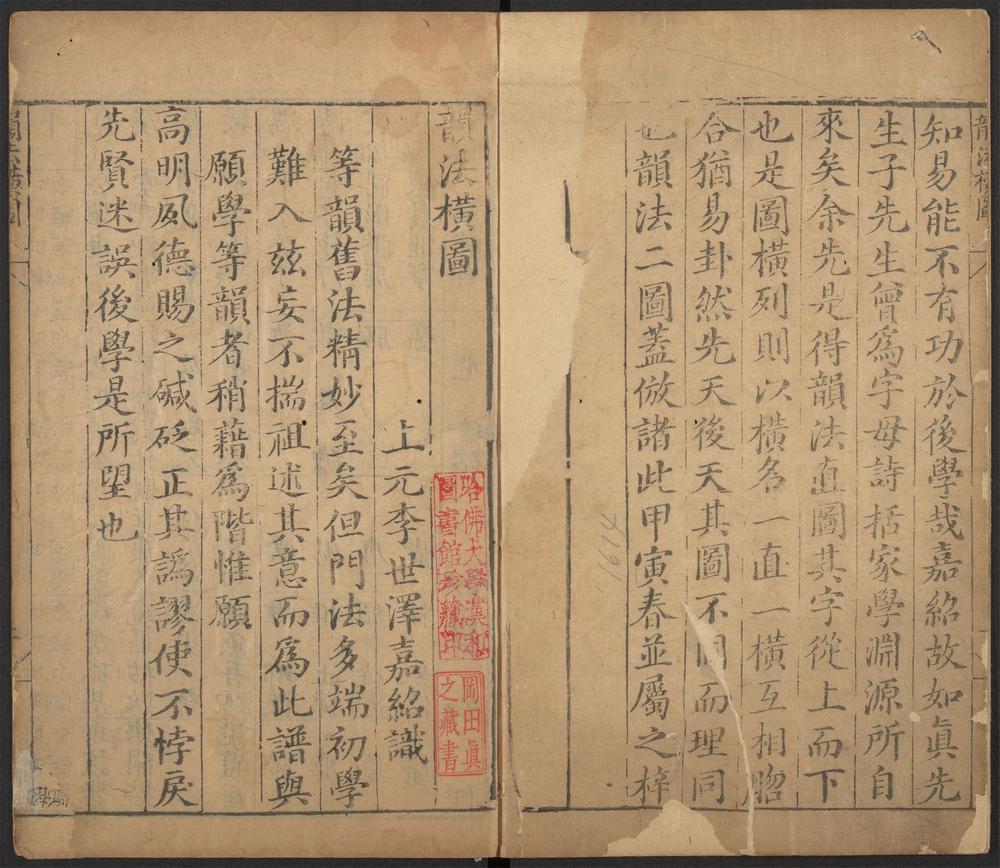 知易能不有功於後學哉嘉紹故如眞先
生子先生曾爲字母詩括家學淵源所自
來矣余先是得韻法直圖其字從上而下
也是圖橫列則以橫名一直一橫互相脗
合猶易卦然先天後天其圖不同而理同
也韻法二圖蓋倣諸此甲寅春並屬之梓
韻法橫圖
韻法橫圖
上元李世澤嘉紹識
等韻舊法精妙至矣但門法多端初學
難入玆妄不揣祖述其意而爲此譜與
願學等韻者稍藉爲階惟願
高明夙德賜之碱砭正其譌謬使不悖戾
先賢迷誤後學是所望也
哈佛大學漢和
圖書館珍藏印
岡田眞
之藏書